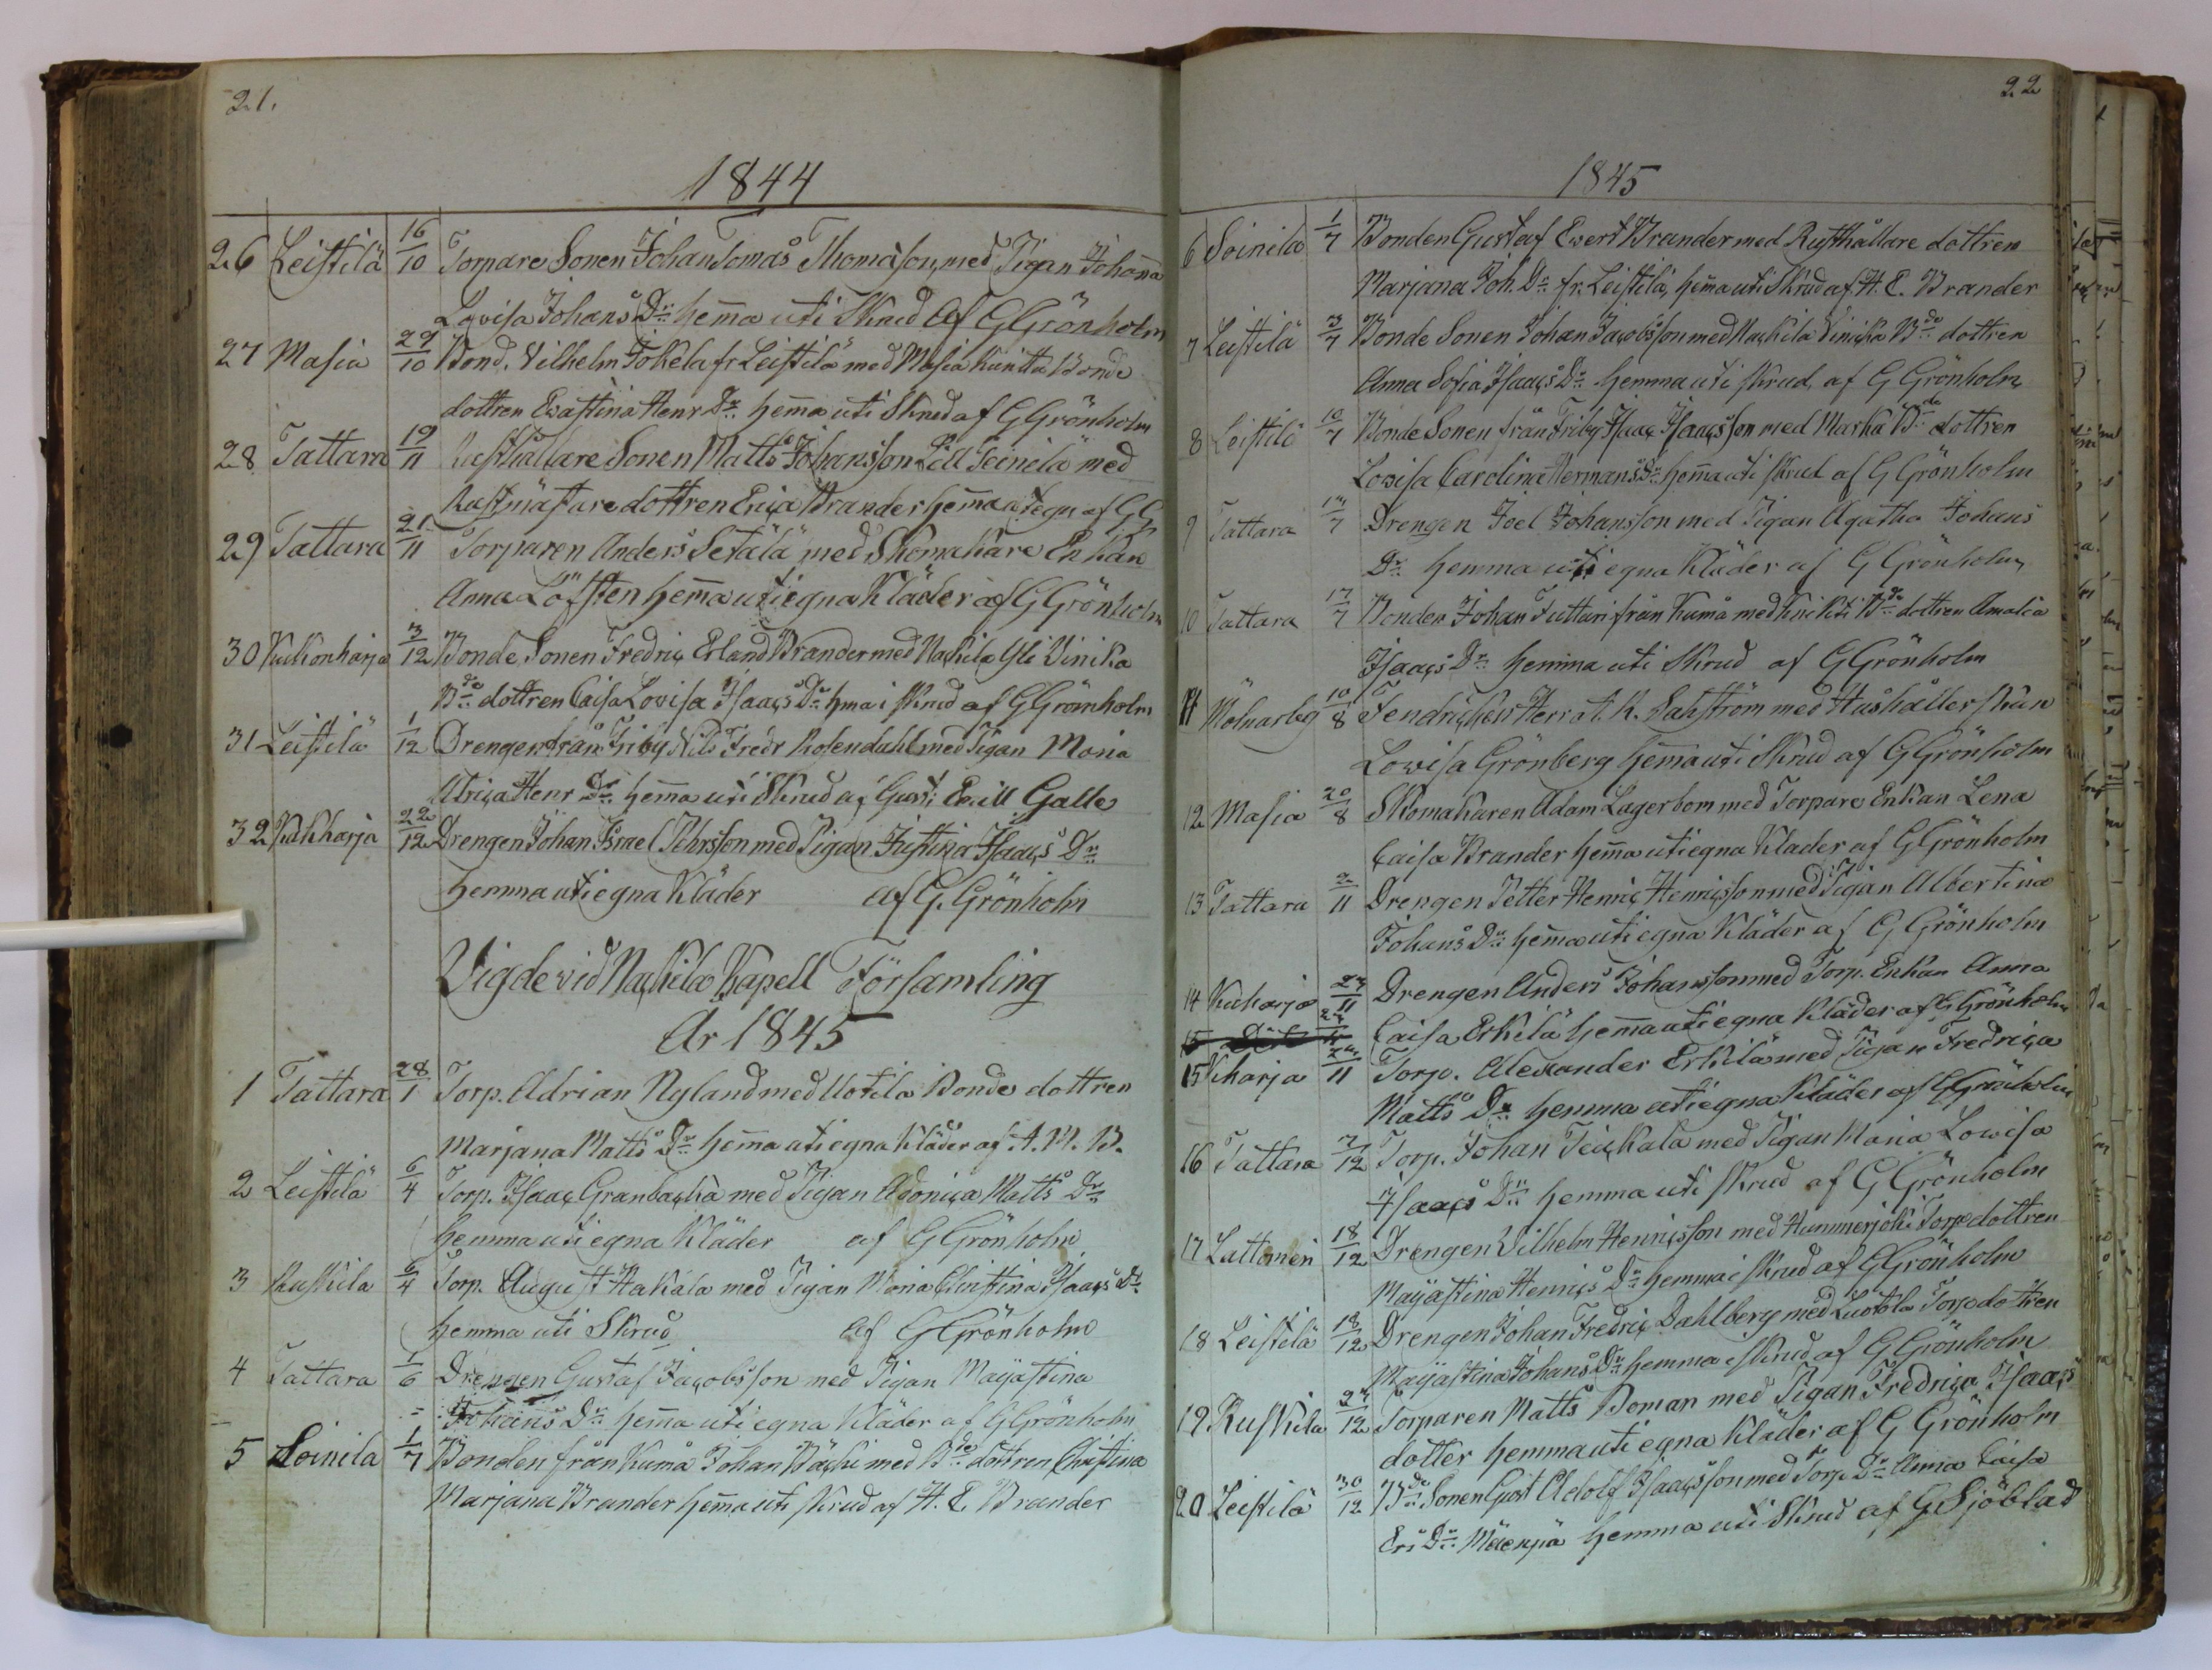 21.
1844
26 Leistilä 16/10 Torpare Sonen Johan Tomas Thomasson, med Pigan Johanna
Lovisa Johans Dr hemma uti Skrud af G Grönholm
27 Masia 29/10 Bond. Vilhelm Jokela fr Leistilä med Masia Kuritta Bonde
dottren Evastina Henr Dr hemma uti Skrud af G Grönholm
28 Tattara 19/11 Rusthållare Sonen Matts Johansson Lill Seinilä med
Rustmästare dottren Erica Brander hemma uti egn af G G
29 Tattara 21/11 Torparen Anders Setälä med Skomakare Enkan
Anna Löfsten hemma uti egna Kläder af G Grönholm
30 Kuckonharja 3/12 Bonde Sonen Fredric Erland Brander med Nackila Yli Vinika
Bde dottren Caisa Lovisa Isaacs Dr hma i skrud af G Grönholm
31 Leistilä 1/12 Drengen från Friby Nils Fredr Rosendahl med Pigan Maria
Ulrica Henr Dr hemma uti Skrud af Gust: Emill Galle
32 Kukharja 22/12 Drengen Johan Israel Mrsson med Pigan Justina Isaacs Dr
hemma uti egna Kläder af G. Grönholm
Vigde vid Nackila Kapell Församling
År 1845
1 Tattara 28/1 Torp. Adrian Nyland med Uotila Bonde dottren
Marjana Matts Dr hemma uti egna Kläder af A. M. B.
2 Leistilä 6/4 Torp. Isaac Granbacka med Pigan Adonica Matts Dr
hemma uti egna Kläder af G Grönholm
3 Ruskila 6/4 Torp. August Hakala med Pigan Maria Christina Isaacs Dr
hemma uti Skrud af G Grönholm
4 Tattara 1/6 Drengen Gustaf Jacobsson med Pigan Majastina
Johans Dr hemma uti egna Kläder af G Grönholm
5 Soinila 1/7 Bonden från Kumå Johan Bäcki med Bde dottren Christina
Marjana Brander hemma uti skrud af H. E Brander
22
1845
6 Soinila 1/7 Bonden Gustaf Evert Brander med Rusthållare dottren
Marjana Joh. Dr fr. Leistilä, hemma uti Skrud af H. E. Brander
7 Leistilä 3/7 Bonde Sonen Johan Jacobsson med Nackila Vinicka Bde dottren
Anna Sofia Isaacs Dr hemma uti skrud af G Grönholm
8 Leistilä 10/7 Bonde Sonen från Friby Isaac Isaacsson med Marka Bde dottren
Lovisa Carolina Hermans Dr hemma uti skrud af G Grönholm
9 Tattara /7 Drengen Joel Johansson med Pigan Agatha Johans
Dr hemma uti egna Kläder af G Grönholm
10 Tattara 17/7 Bonden Johan Tuttari från Kumå med Knickti Bde dottren Amalia
Isaacs Dr hemma uti Skrud af G Grönholm
11 Molnarbeg 10/8 Fendricken Herr A. K. Dahström med Hushållerskan
Lovisa Grönberg hemma uti Skrud af G Grönholm
12 Masia 20/8 Skomakaren Adam Lagerbom med Torpare Enkan Lena
Caisa Brander hemma uti egna Klader af G Grönholm
13 Tattara 2/11 Drengen Petter Henric Henricsson med Pigan Albertina
Johans Dr hemma uti egna Kläder af G Grönholm
14 Kukarja 27/11 Drengen Anders Johansson med Torp. Enkan Anna
Caisa Erkilä hemma uti egna Kläder af G Grönholm
15 Kharja /11 Torp. Alexander Erkilä med Pigan Fredrica
Matts Dr hemma uti egna Kläder af G Grönholm
16 Tattara 7/12 Torp. Johan Teickala med Pigan Maria Lovisa
Isaacs Dr hemma uti skrud af G Grönholm
17 Lattomeri 18/12 Drengen Vilhelm Henricsson med Hummerjoki Torp dottren
Majastina Henrics Dr hemma i skrud af G Grönholm
18 Leistilä 18/12 Drengen Johan Fredric Dahlberg med Luotola Torp dottren
Majastina Johans Dr hemma i skrud af G Grönholm
19 Ruskila 27/12 Torparen Matts Boman med Pigan Fredrica Isaacs
dotter hemma uti egna Kläder af G Grönholm
20 Leistilä 30/12 Bde Sonen Gust Adolf Isaacsson med Torp Dr Anna Caisa
Ers Dr Mäenpä hemma uti Skrud af G Sjöblad